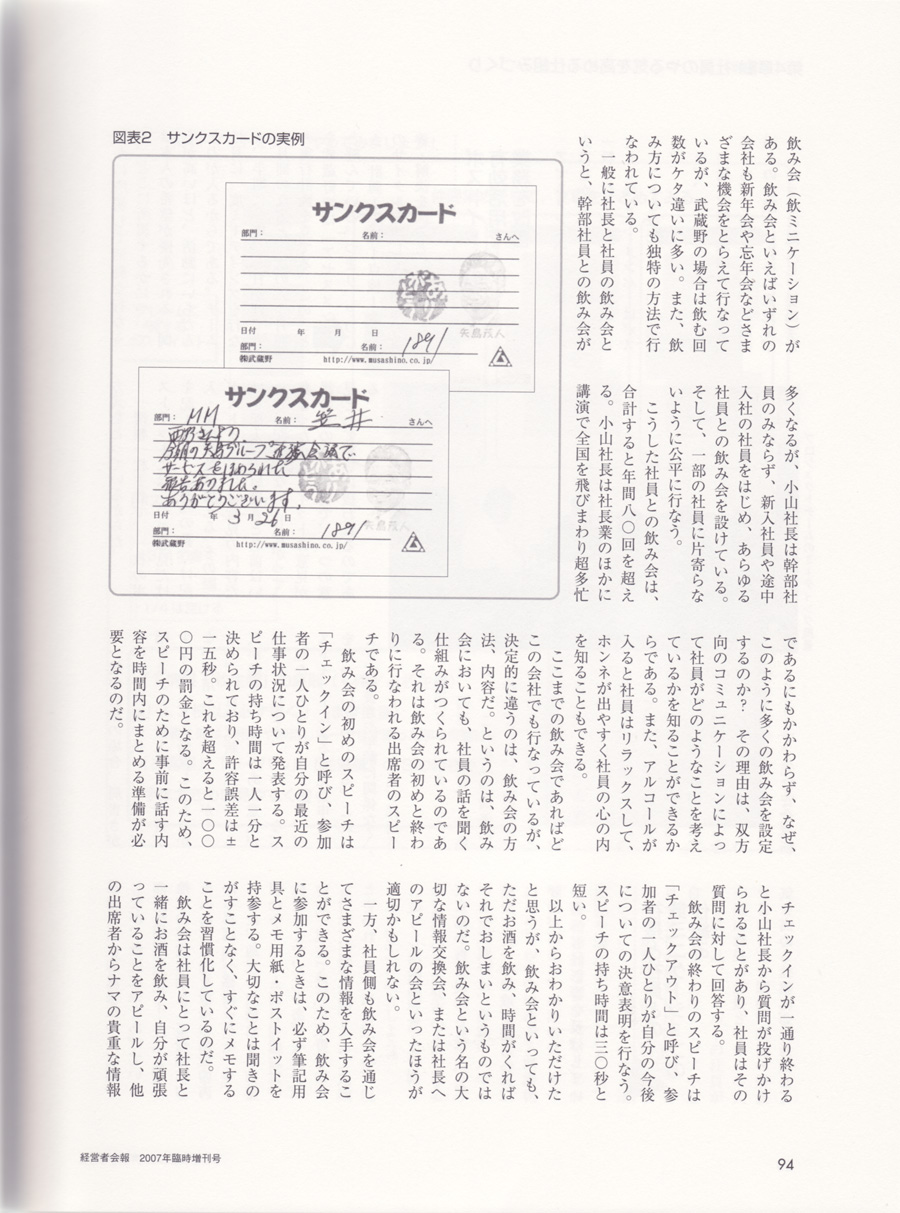 図表2　サンクスカードの実例
サンクスカード
部門：　名前：　さんへ
日付　年　月　日
部門：　名前：　1891
㈱武蔵野　http://www.musashino.co.jp/
サンクスカード
部門：MM　名前：笠井　さんへ
サービスをほめられた
報告ありました。
ありがとうございます。
日付　年　3月26日
部門：　名前：　1891
㈱武蔵野　http://www.musashino.co.jp/
飲み会（飲ミニケーション）が
ある。飲み会といえばいずれの
会社も新年会や忘年会などさま
ざまな機会をとらえて行なって
いるが、武蔵野の場合は飲む回
数がケタ違いに多い。また、飲
み方についても独特の方法で行
なわれている。
　一般に社長と社員の飲み会と
いうと、幹部社員との飲み会が
多くなるが、小山社長は幹部社
員のみならず、新入社員や途中
入社の社員をはじめ、あらゆる
社員との飲み会を設けている。
そして、一部の社員に片寄らな
いように公平に行なう。
　こうした社員との飲み会は、
合計すると年間八〇回を超え
る。小山社長は社長業のほかに
講演で全国を飛びまわり超多忙
であるにもかかわらず、なぜ、
このように多くの飲み会を設定
するのか？　その理由は、双方
向のコミュニケーションによっ
て社員がどのようなことを考え
ているかを知ることができるか
らである。また、アルコールが
入ると社員はリラックスして、
ホンネが出やすく社員の心の内
を知ることもできる。
　ここまでの飲み会であればど
この会社でも行なっているが、
決定的に違うのは、飲み会の方
法、内容だ。というのは、飲み
会においても、社員の話を聞く
仕組みがつくられているのであ
る。それは飲み会の初めと終わ
りに行なわれる出席者のスピー
チである。
　飲み会の初めのスピーチは
「チェックイン」と呼び、参加
者の一人ひとりが自分の最近の
仕事状況について発表する。ス
ピーチの持ち時間は一人一分と
決められており、許容誤差は±
一五秒。これを超えると一〇〇
〇円の罰金となる。このため、
スピーチのために事前に話す内
容を時間内にまとめる準備が必
要となるのだ。
　チェックインが一通り終わる
と小山社長から質問が投げかけ
られることがあり、社員はその
質問に対して回答する。
　飲み会の終わりのスピーチは
「チェックアウト」と呼び、参
加者の一人ひとりが自分の今後
についての決意表明を行なう。
スピーチの持ち時間は三〇秒と
短い。
　以上からおわかりいただけた
と思うが、飲み会といっても、
ただお酒を飲み、時間がくれば
それでおしまいというものでは
ないのだ。飲み会という名の大
切な情報交換会、または社長へ
のアピールの会といったほうが
適切かもしれない。
　一方、社員側も飲み会を通じ
てさまざまな情報を入手するこ
とができる。このため、飲み会
に参加するときは、必ず筆記用
具とメモ用紙・ポストイットを
持参する。大切なことは聞きの
がすことなく、すぐにメモする
ことを習慣化しているのだ。
　飲み会は社員にとって社長と
一緒にお酒を飲み、自分が頑張
っていることをアピールし、他
の出席者からナマの貴重な情報
経営者会報　2007年臨時増刊号
94